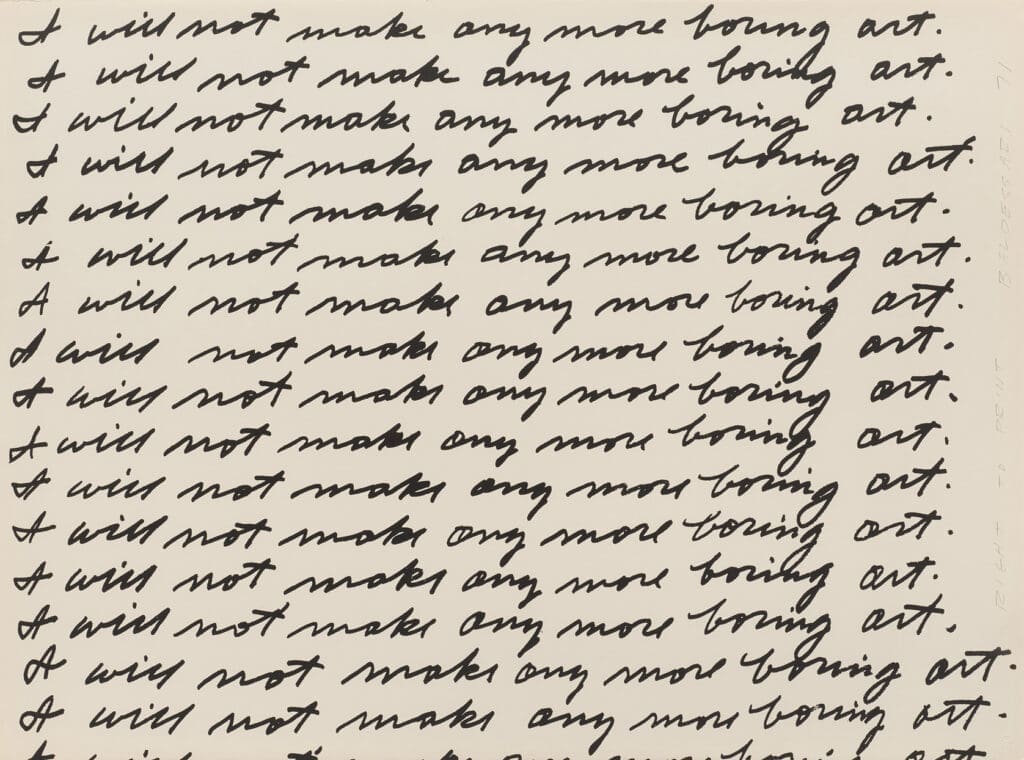 I will not make any more boring art.
I will not make any more boring art.
I will not make any more boring art.
I will not make any more boring art.
I will not make any more boring art.
I will not make any more boring art.
I will not make any more boring art.
I will not make any more boring art.
I will not make any more boring art.
I will not make any more boring art.
I will not make any more boring art.
I will not make any more boring art.
I will not make any more boring art.
I will not make any more boring art.
I will not make any more boring art.
I will not make any more boring art.
I will not make any more boring art
RIGHT TO PRINT BALDESSARI 71